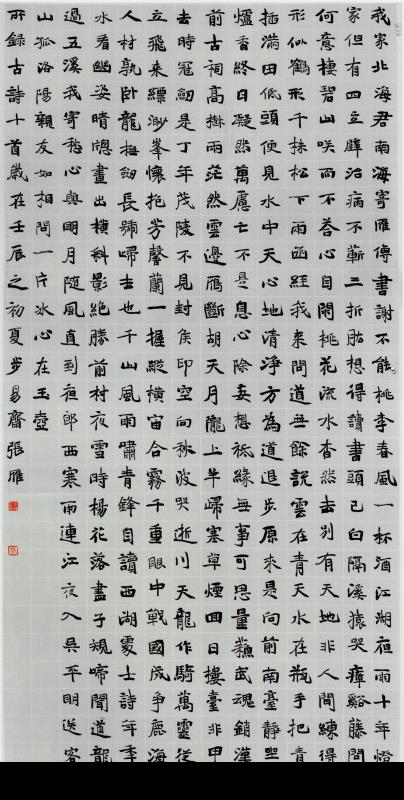 我家北海君南海寄雁傳書謝不能桃李春風一杯酒江湖夜雨十年燈
家但有四立壁治病不蘄三折肱想得讀書頭已白隔溪猿哭瘴谿藤問
何意棲碧山笑而不答心自閑桃花流水杳然去別有天地非人間練得
形似鶴形千株松下兩函經我來問道無餘說雲在青天水在瓶手把青
插滿田低頭便見水中天心地清淨方為道退步原來是向前南臺靜坐
爐香終日凝然萬慮亡不是息心除妄想祗緣無事可思量蘇武魂銷漢
前古祠高樹兩茫然雲邊雁斷胡天月隴上羊歸塞草煙回日樓臺非甲
去時冠劍是丁年茂陵不見封侯印空向秋波哭逝川天龍作騎萬靈從
立飛來縹渺峯懷抱芳馨蘭一握縱橫宙合霧千重眼中戰國成爭鹿海
人材孰臥龍撫劍長號歸去也千山風雨嘯青鋒自讀西湖處士詩年年
水看幽姿晴窗畫出橫斜影絕勝前村夜雪時楊花落盡子規啼聞道龍
過五溪我寄愁心與明月隨風直到夜郎西寒雨連江夜入吳平明送客
山孤洛陽親友如相問一片冰心在玉壺
所錄古詩十首歲在壬辰之初夏步易齋張雁